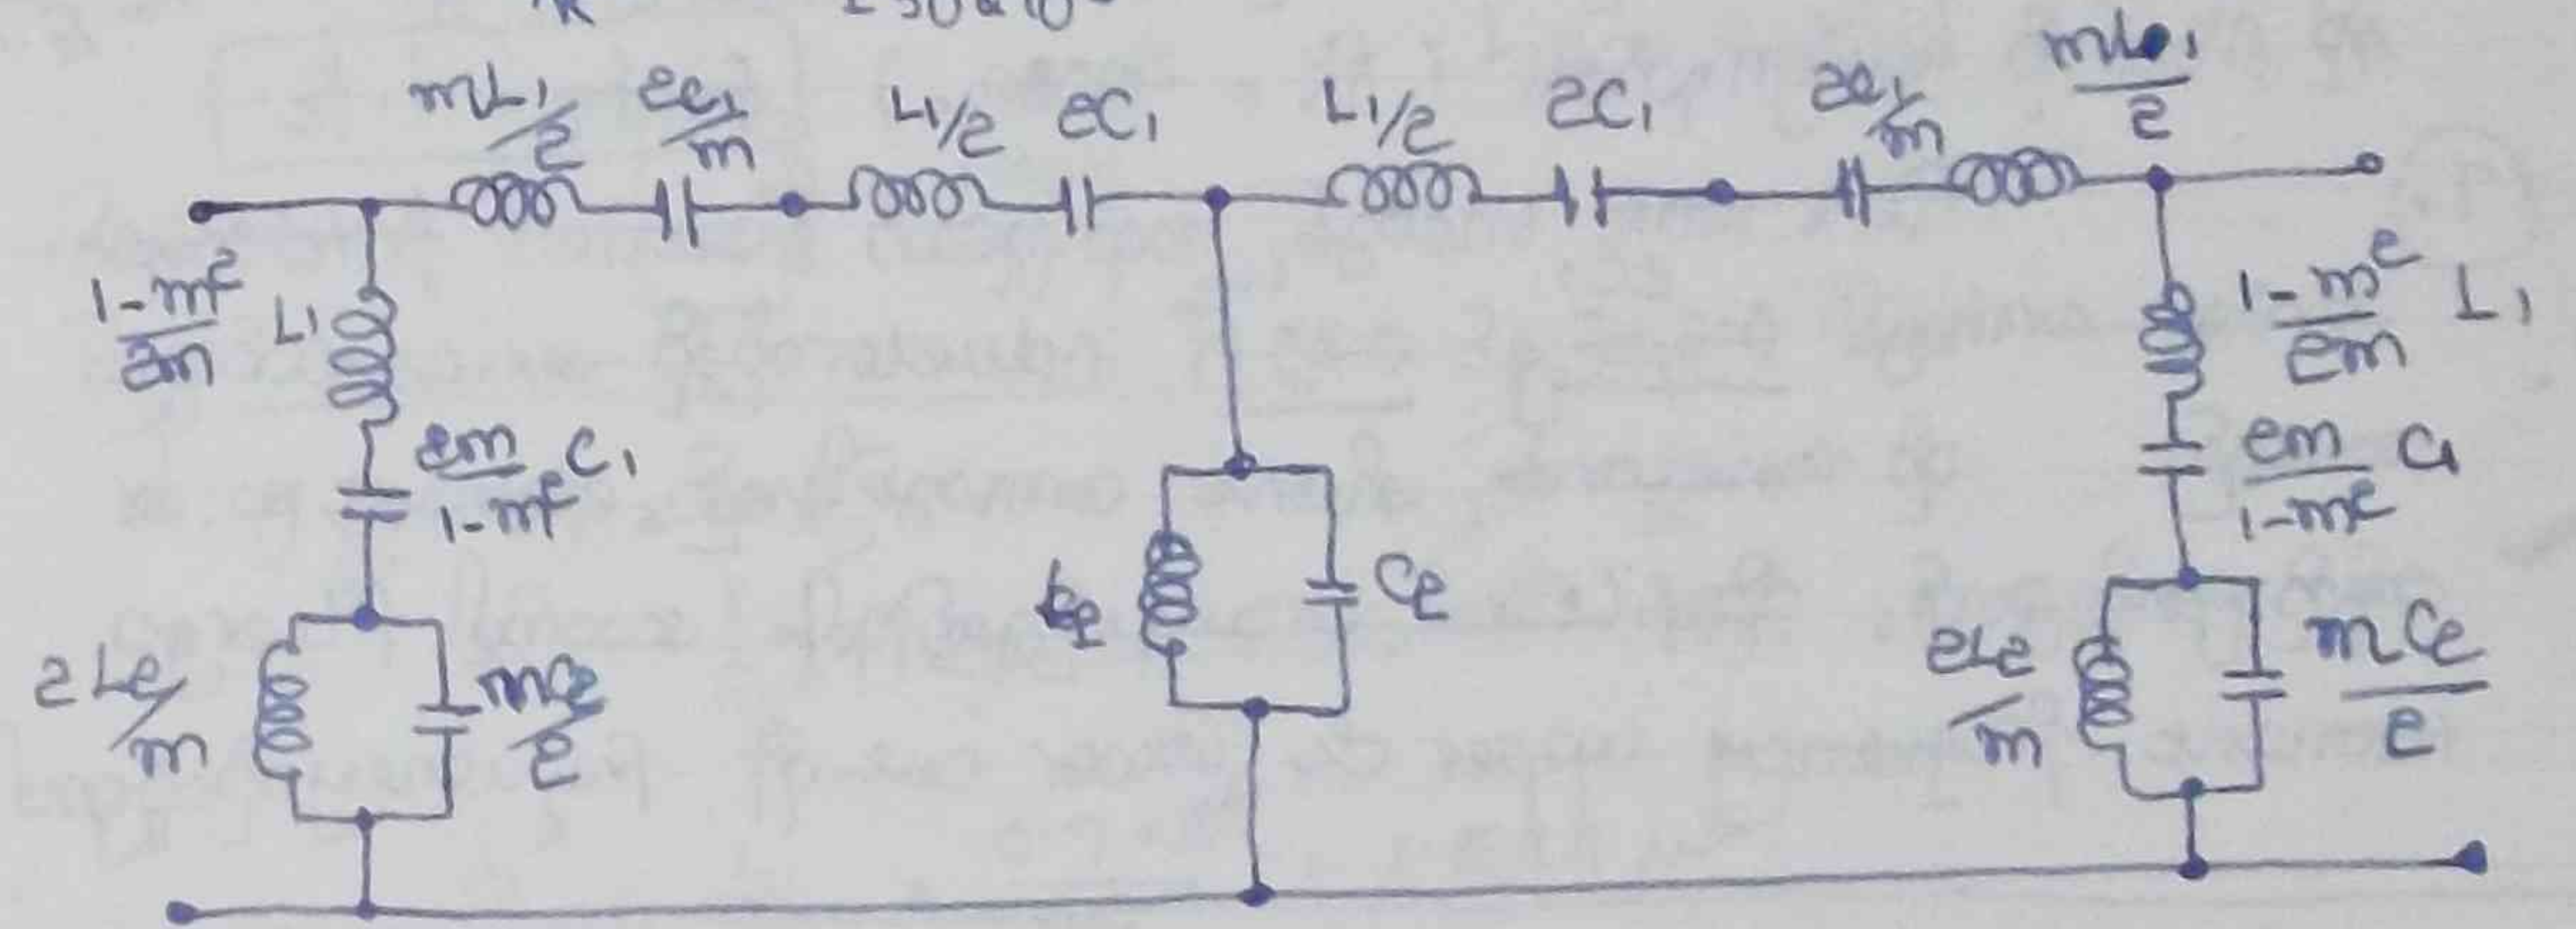 mL₁/2 2C₁/m L₁/2 2C₁ L₁/2 2C₁ 2C₁/m mL₁/2
1-m²/2m L₁
2m/1-m² C₁
2L₂/m mC₂/2
L₂ C₂
1-m²/2m L₁
2m/1-m² C₁
2L₂/m mC₂/2